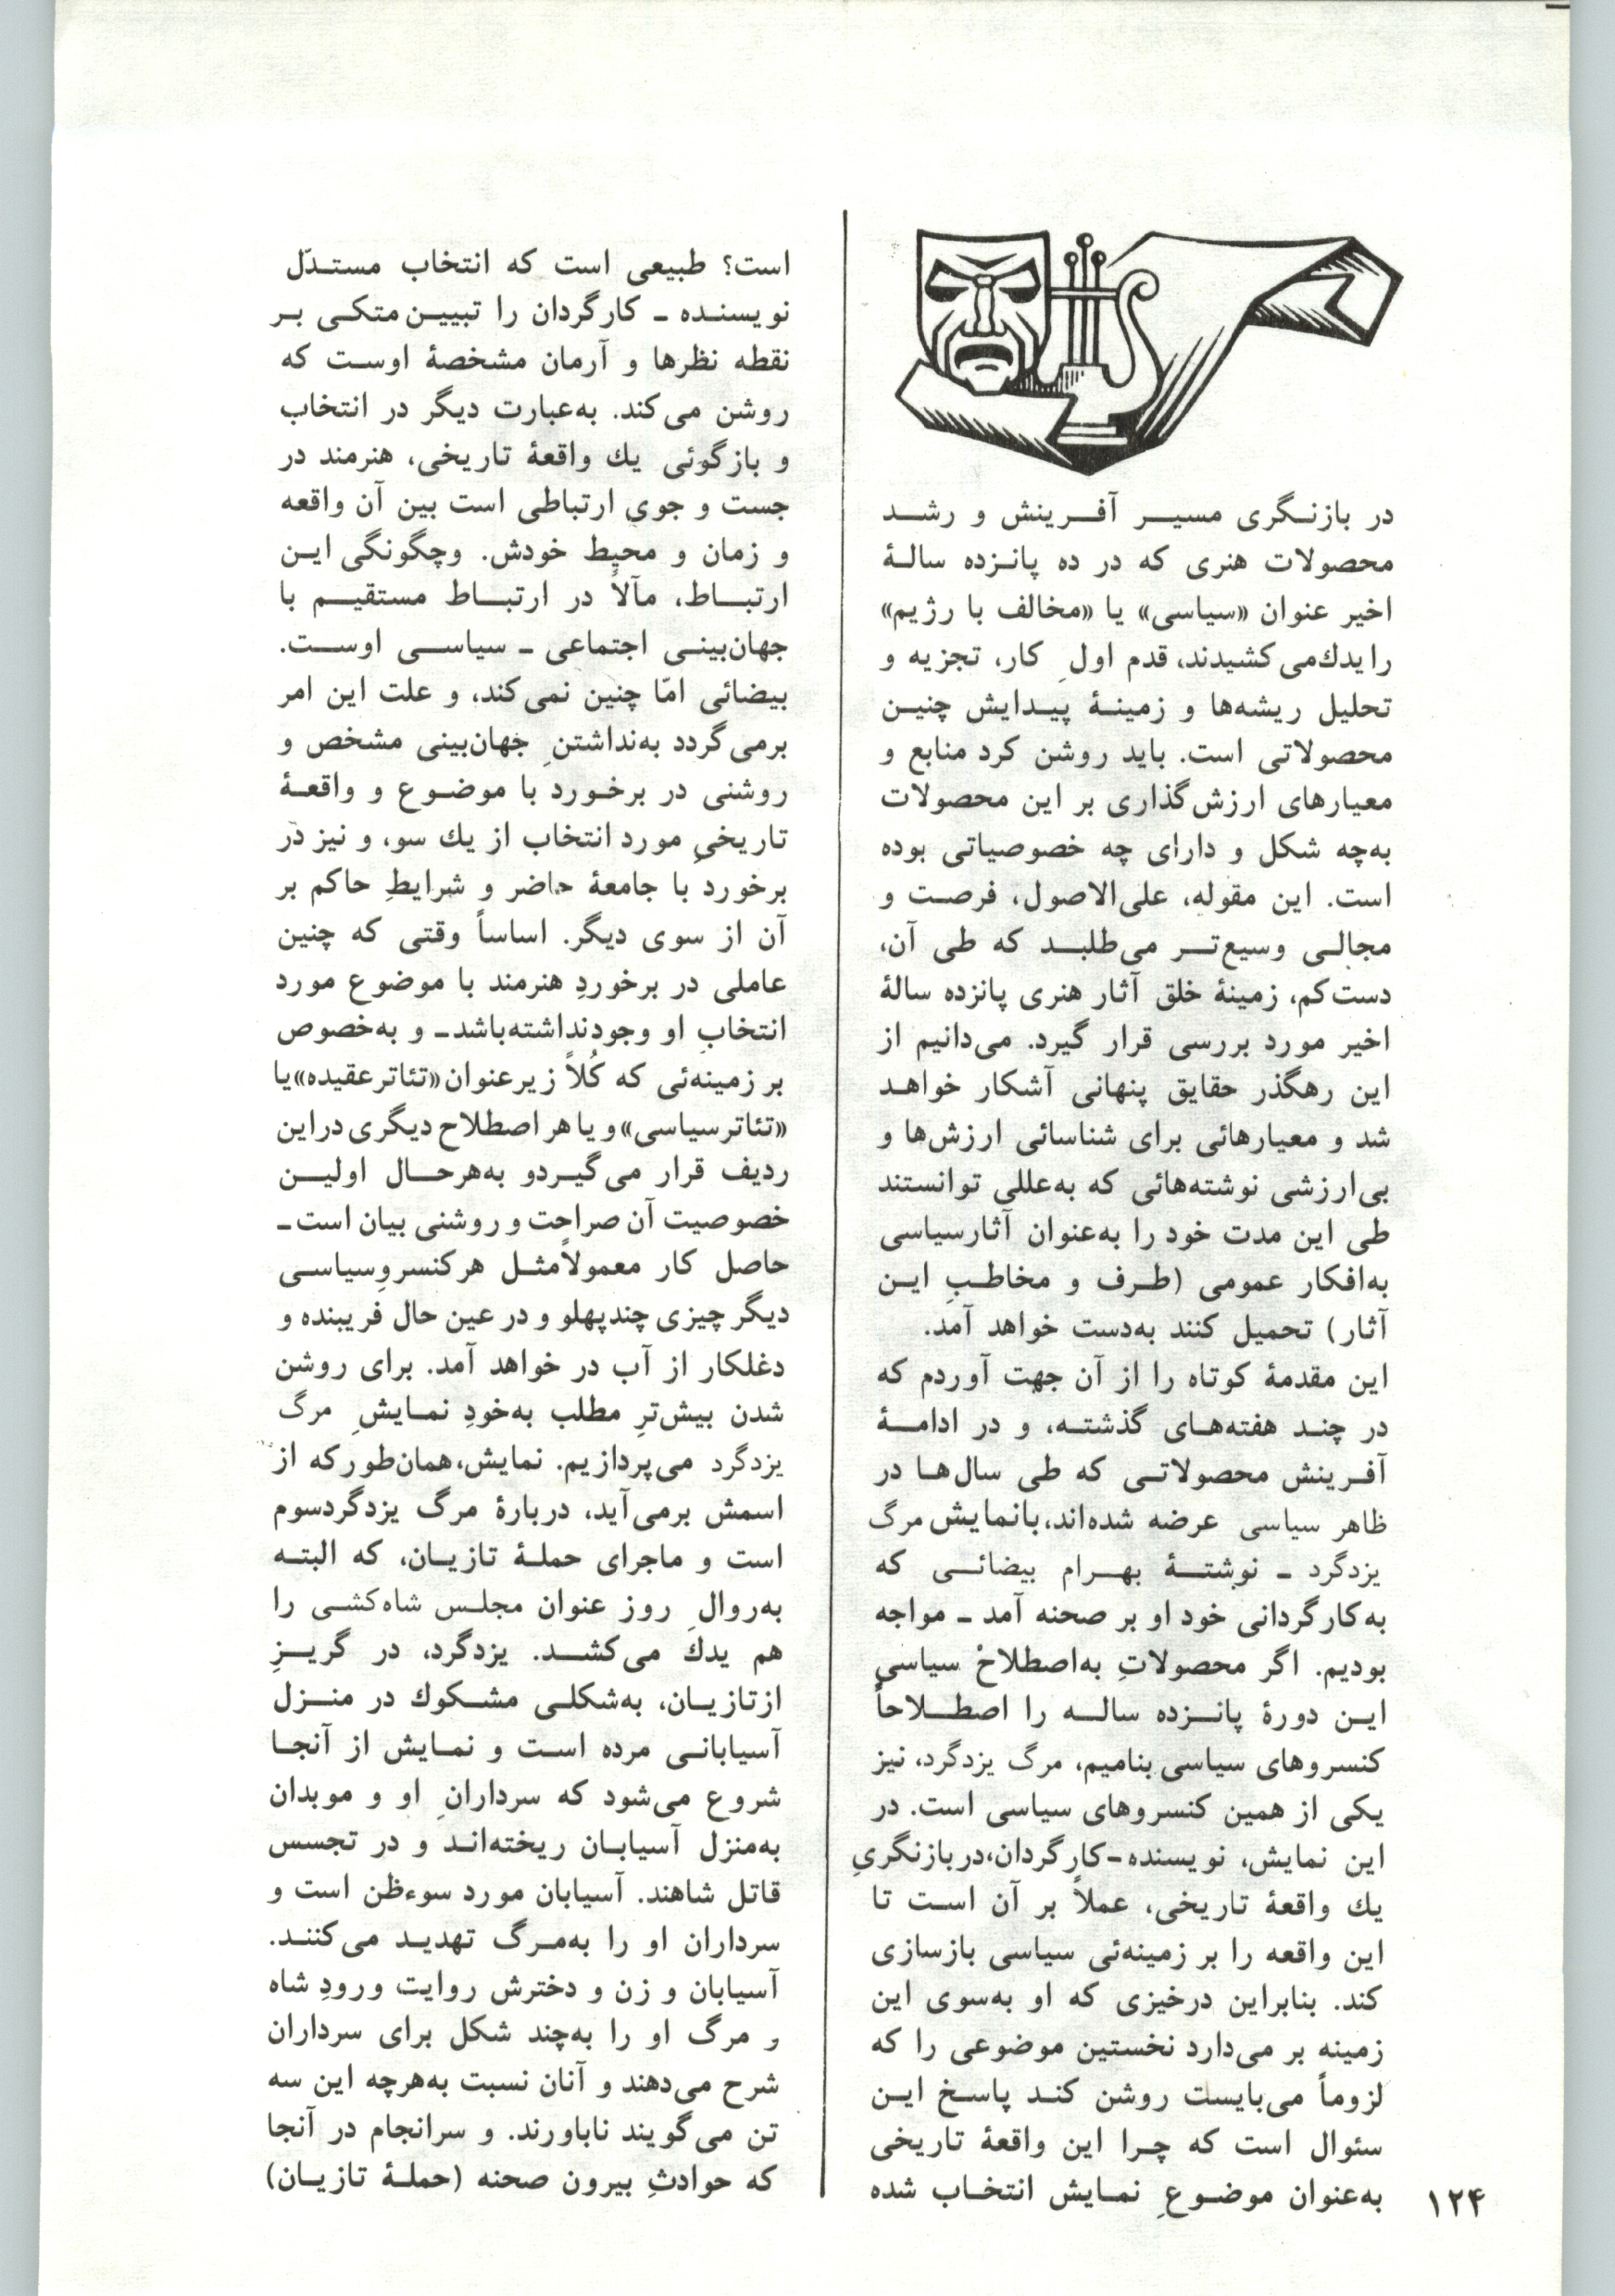 در بازنگری مسیر آفرینش و رشد
محصولات هنری که در ده پانزده سالۀ
اخیر عنوان «سیاسی» یا «مخالف با رژیم»
را یدك می‌کشیدند، قدم اولِ کار، تجزیه و
تحلیل ریشه‌ها و زمینۀ پیدایش چنین
محصولاتی است. باید روشن کرد منابع و
معیارهای ارزش‌گذاری بر این محصولات
به‌چه شکل و دارای چه خصوصیاتی بوده
است. این مقوله، علی‌الاصول، فرصت و
مجالی وسیع‌تر می‌طلبد که طی آن،
دست‌کم، زمینۀ خلق آثار هنری پانزده سالۀ
اخیر مورد بررسی قرار گیرد. می‌دانیم از
این رهگذر حقایق پنهانی آشکار خواهد
شد و معیارهائی برای شناسائی ارزش‌ها و
بی‌ارزشی نوشته‌هائی که به‌عللی توانستند
طی این مدت خود را به‌عنوان آثار سیاسی
به‌افکار عمومی (طرف و مخاطبِ این
آثار) تحمیل کنند به‌دست خواهد آمد.
این مقدمۀ کوتاه را از آن جهت آوردم که
در چند هفته‌های گذشته، و در ادامۀ
آفرینش محصولاتی که طی سال‌ها در
ظاهر سیاسی عرضه شده‌اند، با نمایش مرگ
یزدگرد ـ نوشتۀ بهرام بیضائی که
به‌کارگردانی خود او بر صحنه آمد ـ مواجه
بودیم. اگر محصولاتِ به‌اصطلاحْ سیاسیِ
این دورۀ پانزده ساله را اصطلاحاً
کنسروهای سیاسی بنامیم، مرگ یزدگرد، نیز
یکی از همین کنسروهای سیاسی است. در
این نمایش، نویسنده ـ کارگردان، در بازنگریِ
یك واقعۀ تاریخی، عملاً بر آن است تا
این واقعه را بر زمینه‌ئی سیاسی بازسازی
کند. بنابراین درخیزی که او به‌سوی این
زمینه بر می‌دارد نخستین موضوعی را که
لزوماً می‌بایست روشن کند پاسخ این
سئوال است که چرا این واقعۀ تاریخی
به‌عنوان موضوعِ نمایش انتخاب شده
است؟ طبیعی است که انتخاب مستدّل
نویسنده ـ کارگردان را تبیین متکی بر
نقطه نظرها و آرمان مشخصۀ اوست که
روشن می‌کند. به‌عبارت دیگر در انتخاب
و بازگوئی یك واقعۀ تاریخی، هنرمند در
جست و جوی ارتباطی است بین آن واقعه
و زمان و محیطِ خودش. وچگونگی این
ارتباط، مآلاً در ارتباط مستقیم با
جهان‌بینی اجتماعی ـ سیاسی اوست.
بیضائی امّا چنین نمی‌کند، و علت این امر
برمی‌گردد به‌نداشتنِ جهان‌بینی مشخص و
روشنی در برخورد با موضوع و واقعۀ
تاریخیِ مورد انتخاب از یك سو، و نیز در
برخورد با جامعۀ حاضر و شرایطِ حاکم بر
آن از سوی دیگر. اساساً وقتی که چنین
عاملی در برخوردِ هنرمند با موضوع مورد
انتخابِ او وجود نداشته باشد ـ و به‌خصوص
بر زمینه‌ئی که کُلاً زیر عنوان «تئاتر عقیده» یا
«تئاتر سیاسی» و یا هر اصطلاح دیگری در این
ردیف قرار می‌گیردو به‌هرحال اولین
خصوصیت آن صراحت و روشنی بیان است ـ
حاصل کار معمولاً مثل هر کنسروِ سیاسی
دیگر چیزی چندپهلو و در عین حال فریبنده و
دغلکار از آب در خواهد آمد. برای روشن
شدن بیش‌ترِ مطلب به‌خودِ نمایشِ مرگ
یزدگرد می‌پردازیم. نمایش، همان‌طور که از
اسمش برمی‌آید، دربارۀ مرگ یزدگرد سوم
است و ماجرای حملۀ تازیان، که البته
به‌روالِ روز عنوان مجلس شاه‌کشی را
هم یدك می‌کشد. یزدگرد، در گریزِ
از تازیان، به‌شکلی مشکوك در منزل
آسیابانی مرده است و نمایش از آنجا
شروع می‌شود که سردارانِ او و موبدان
به‌منزل آسیابان ریخته‌اند و در تجسس
قاتل شاهند. آسیابان مورد سوءظن است و
سرداران او را به‌مرگ تهدید می‌کنند.
آسیابان و زن و دخترش روایت ورودِ شاه
و مرگ او را به‌چند شکل برای سرداران
شرح می‌دهند و آنان نسبت به‌هرچه این سه
تن می‌گویند ناباورند. و سرانجام در آنجا
که حوادثِ بیرون صحنه (حملۀ تازیان)
۱۲۴